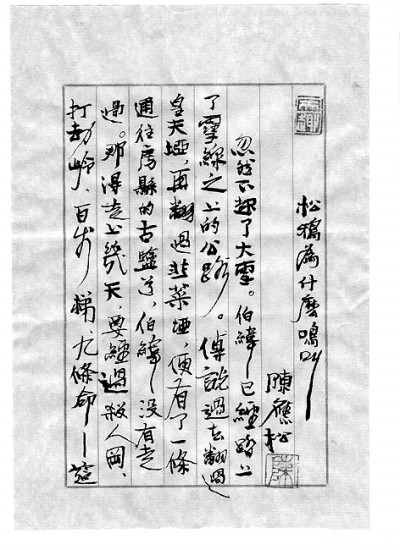 松鴉為什麼鳴叫
陳應松
忽然下起了大雪。伯緯已經踏上
了雪線之上的公路。傳說過去翻過
皇天埡，再翻過韭菜埡，便有了一條
通往房縣的古鹽道，伯緯沒有走
過。那得走上幾天，要經過殺人岡、
打劫嶺、百步梯、九條命——這